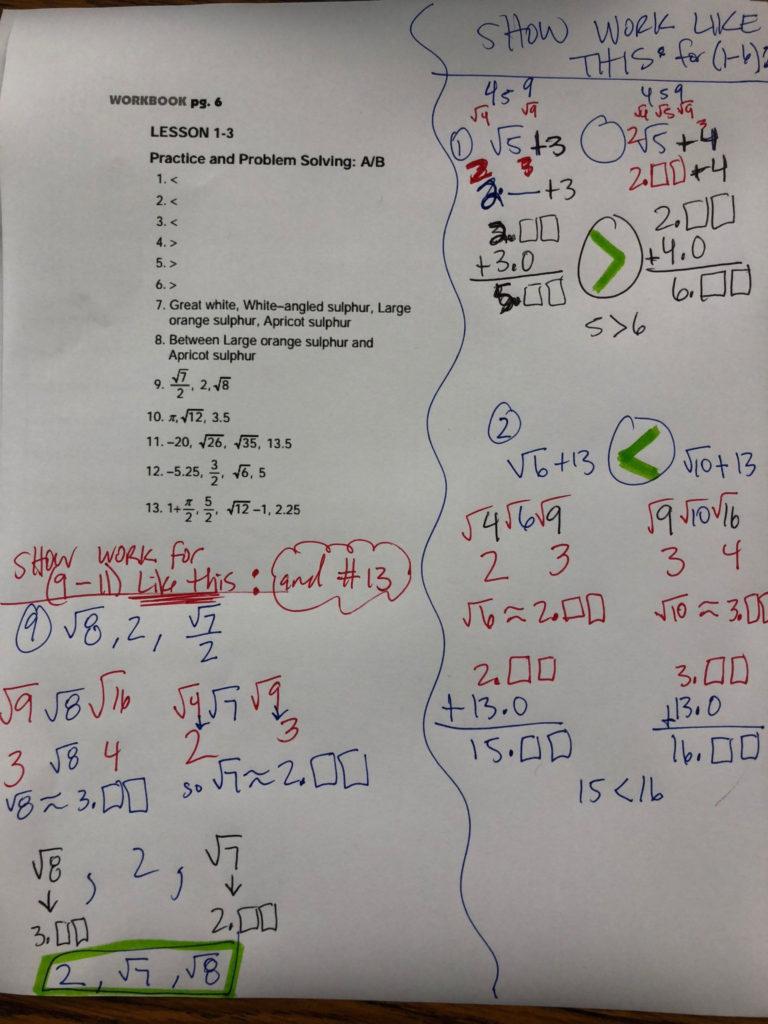 WORKBOOK pg. 6
LESSON 1-3
Practice and Problem Solving: A/B
1. <
2. <
3. <
4. >
5. >
6. >
7. Great white, White–angled sulphur, Large
orange sulphur, Apricot sulphur
8. Between Large orange sulphur and
Apricot sulphur
9. √7/2, 2, √8
10. π, √12, 3.5
11. −20, √26, √35, 13.5
12. −5.25, 3/2, √6, 5
13. 1+π/2, 5/2, √12 −1, 2.25
SHOW WORK FOR
(9 – 11) Like this : and #13
⑨ √8 , 2 , √7/2
√9 √8 √16 √4 √7 √9
3 √8 4 2 3
√8 ≈ 3.□□ so √7 ≈ 2.□□
√8 , 2 , √7
↓ ↓
3.□□ 2.□□
2 , √7 , √8
SHOW WORK LIKE
THIS for (1-6)
4 5 9 4 5 9
√4 √9 √4 √5 √9
① √5 +3 ◯ √5 + 4
2 3 2 3
2.— +3 2.□□ +4
2.□□ 2.□□
+3.0 > +4.0
5.□□ 6.□□
5 > 6
②
√6 +13 < √10 + 13
√4 √6 √9 √9 √10 √16
2 3 3 4
√6 ≈ 2.□□ √10 ≈ 3.□□
2.□□ 3.□□
+13.0 +13.0
15.□□ 16.□□
15 < 16